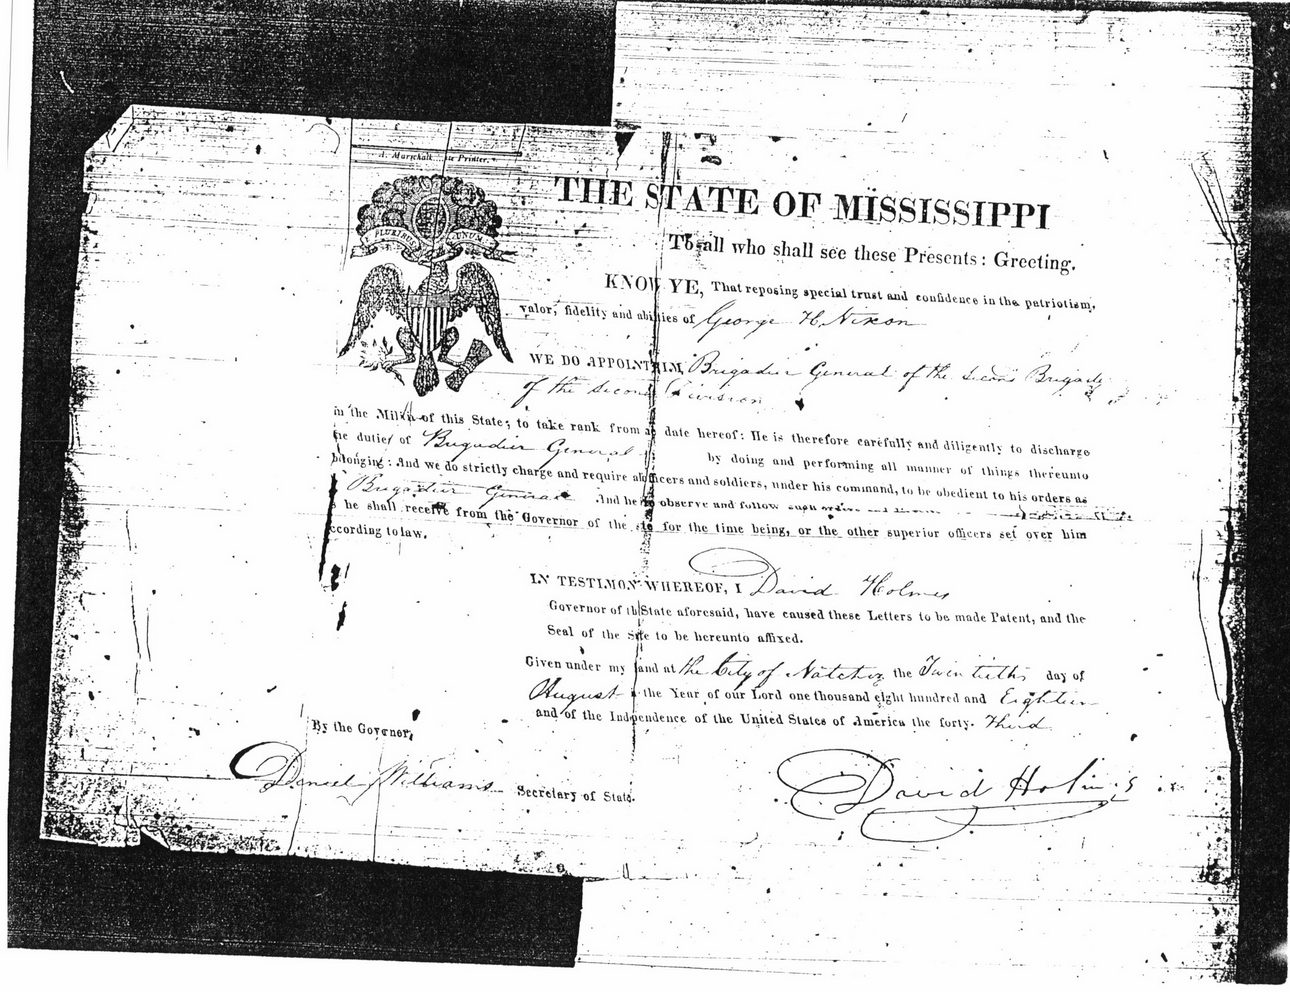 A. Marschalk Printer.
E PLURIBUS UNUM
THE STATE OF MISSISSIPPI
To all who shall see these Presents: Greeting.
KNOW YE, That reposing special trust and confidence in the patriotism,
valor, fidelity and abilities of George H Nixon
WE DO APPOINT HIM, Brigadier General of the second Brigade
of the second Division
in the Militia of this State, to take rank from date hereof: He is therefore carefully and diligently to discharge
the duties of Brigadier General by doing and performing all manner of things thereunto
belonging: And we do strictly charge and require all officers and soldiers, under his command, to be obedient to his orders as
Brigadier General And he to observe and follow such orders and
as he shall receive from the Governor of the state for the time being, or the other superior officers set over him
according to law.
IN TESTIMONY WHEREOF, I David Holmes
Governor of the State aforesaid, have caused these Letters to be made Patent, and the
Seal of the State to be hereunto affixed.
Given under my hand at the City of Natchez the Twentieth day of
August in the Year of our Lord one thousand eight hundred and Eighteen
and of the Independence of the United States of America the forty. Third
By the Governor,
Daniel Williams Secretary of State.
David Holmes